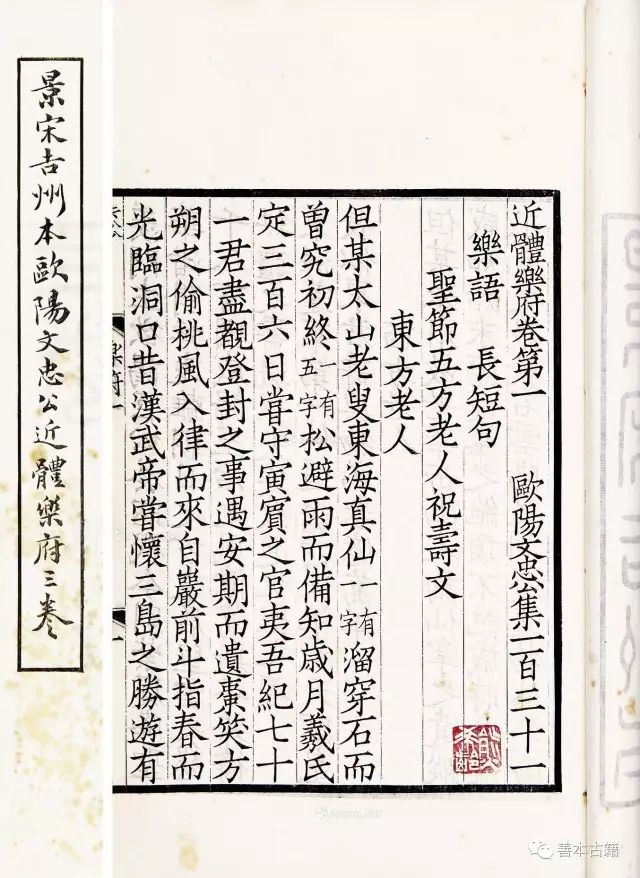 近體樂府卷第一 歐陽文忠公集一百三十一
樂語 長短句
聖節五方老人祝壽文
東方老人
但某太山老叟東海真仙一有字溜穿石而
曾究初終一有五字松避雨而備知歲月羲氏
定三百六日嘗守寅賔之官夷吾紀七十
一君盡觀登封之事遇安期而遺棗笑方
朔之偷桃風入律而來自嚴前斗指春而
光臨洞口昔漢武帝嘗懷三島之勝遊有
景宋吉州本歐陽文忠公近體樂府三卷
善本古籍